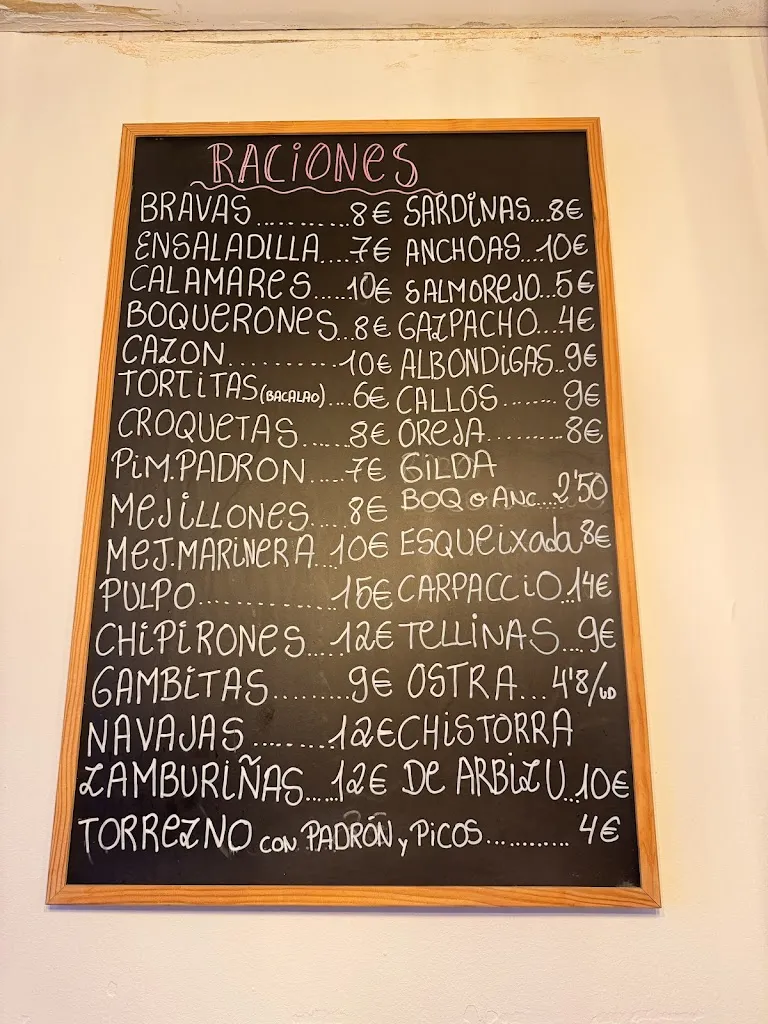 RACIONES
BRAVAS..........8€
ENSALADILLA....7€
CALAMARES.....10€
BOQUERONES...8€
CAZON...........10€
TORTITAS (BACALAO)....6€
CROQUETAS.....8€
PIM.PADRON....7€
MEJILLONES....8€
MEJ.MARINERA..10€
PULPO.............15€
CHIPIRONES...12€
GAMBITAS.......9€
NAVAJAS.......12€
ZAMBURIÑAS....12€
SARDINAS...8€
ANCHOAS...10€
SALMOREJO...5€
GAZPACHO...4€
ALBONDIGAS..9€
CALLOS.......9€
OREJA..........8€
GILDA
BOQ o ANC...2'50
ESQUEIXADA 8€
CARPACCIO..14€
TELLINAS...9€
OSTRA...4'8/UD
CHISTORRA
DE ARBIZU..10€
TORREZNO CON PADRÓN y PICOS........... 4€